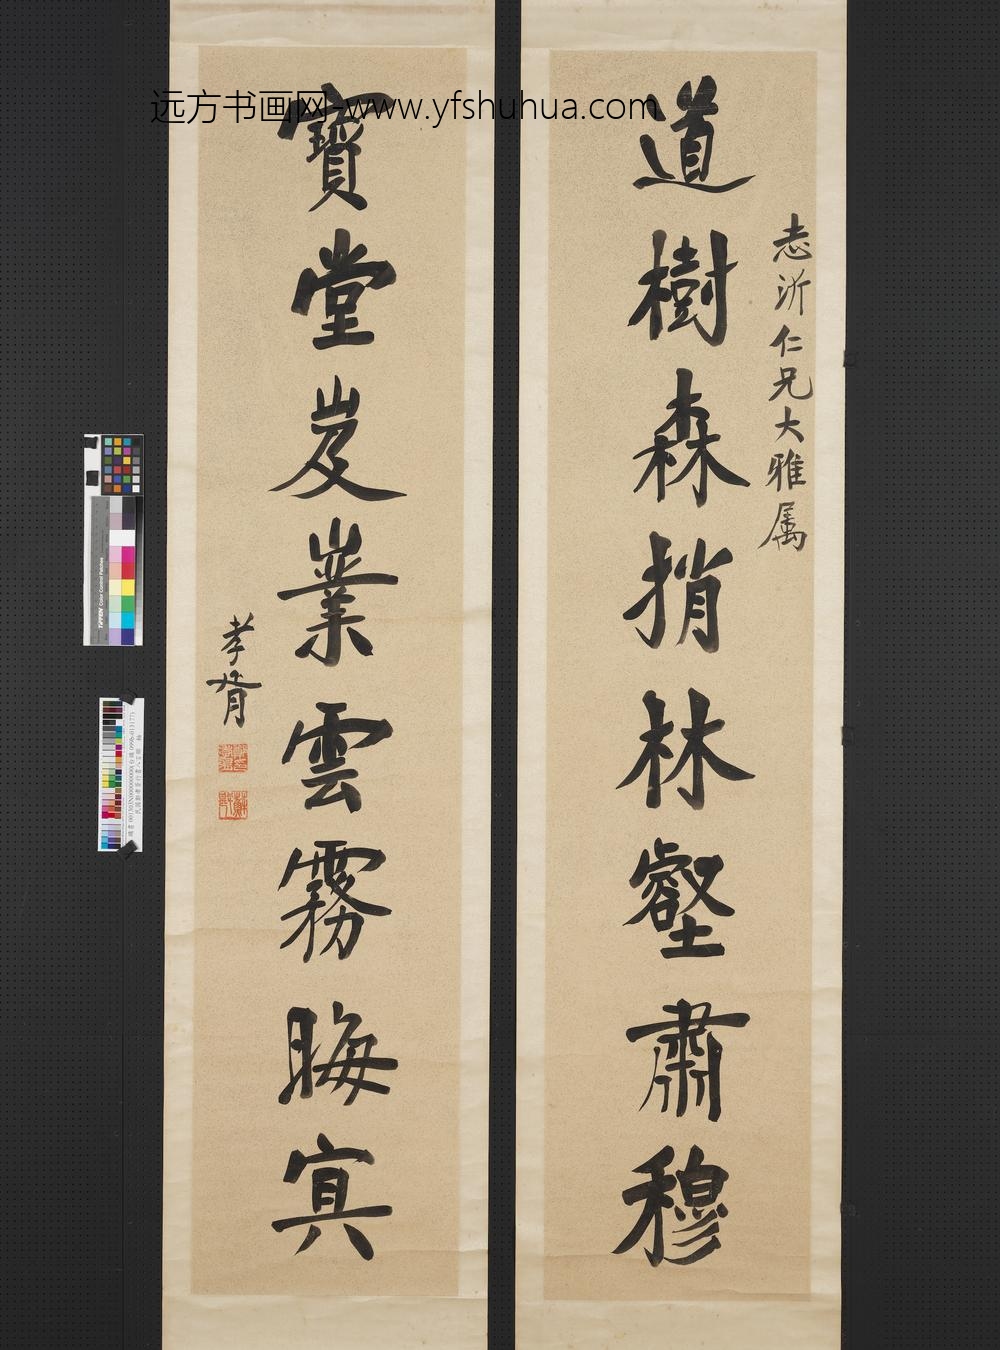 远方书画网-www.yfshuhua.com
志沂仁兄大雅属
道樹森捎林壑肅穆
寶堂岌業雲霧晦冥
孝胥